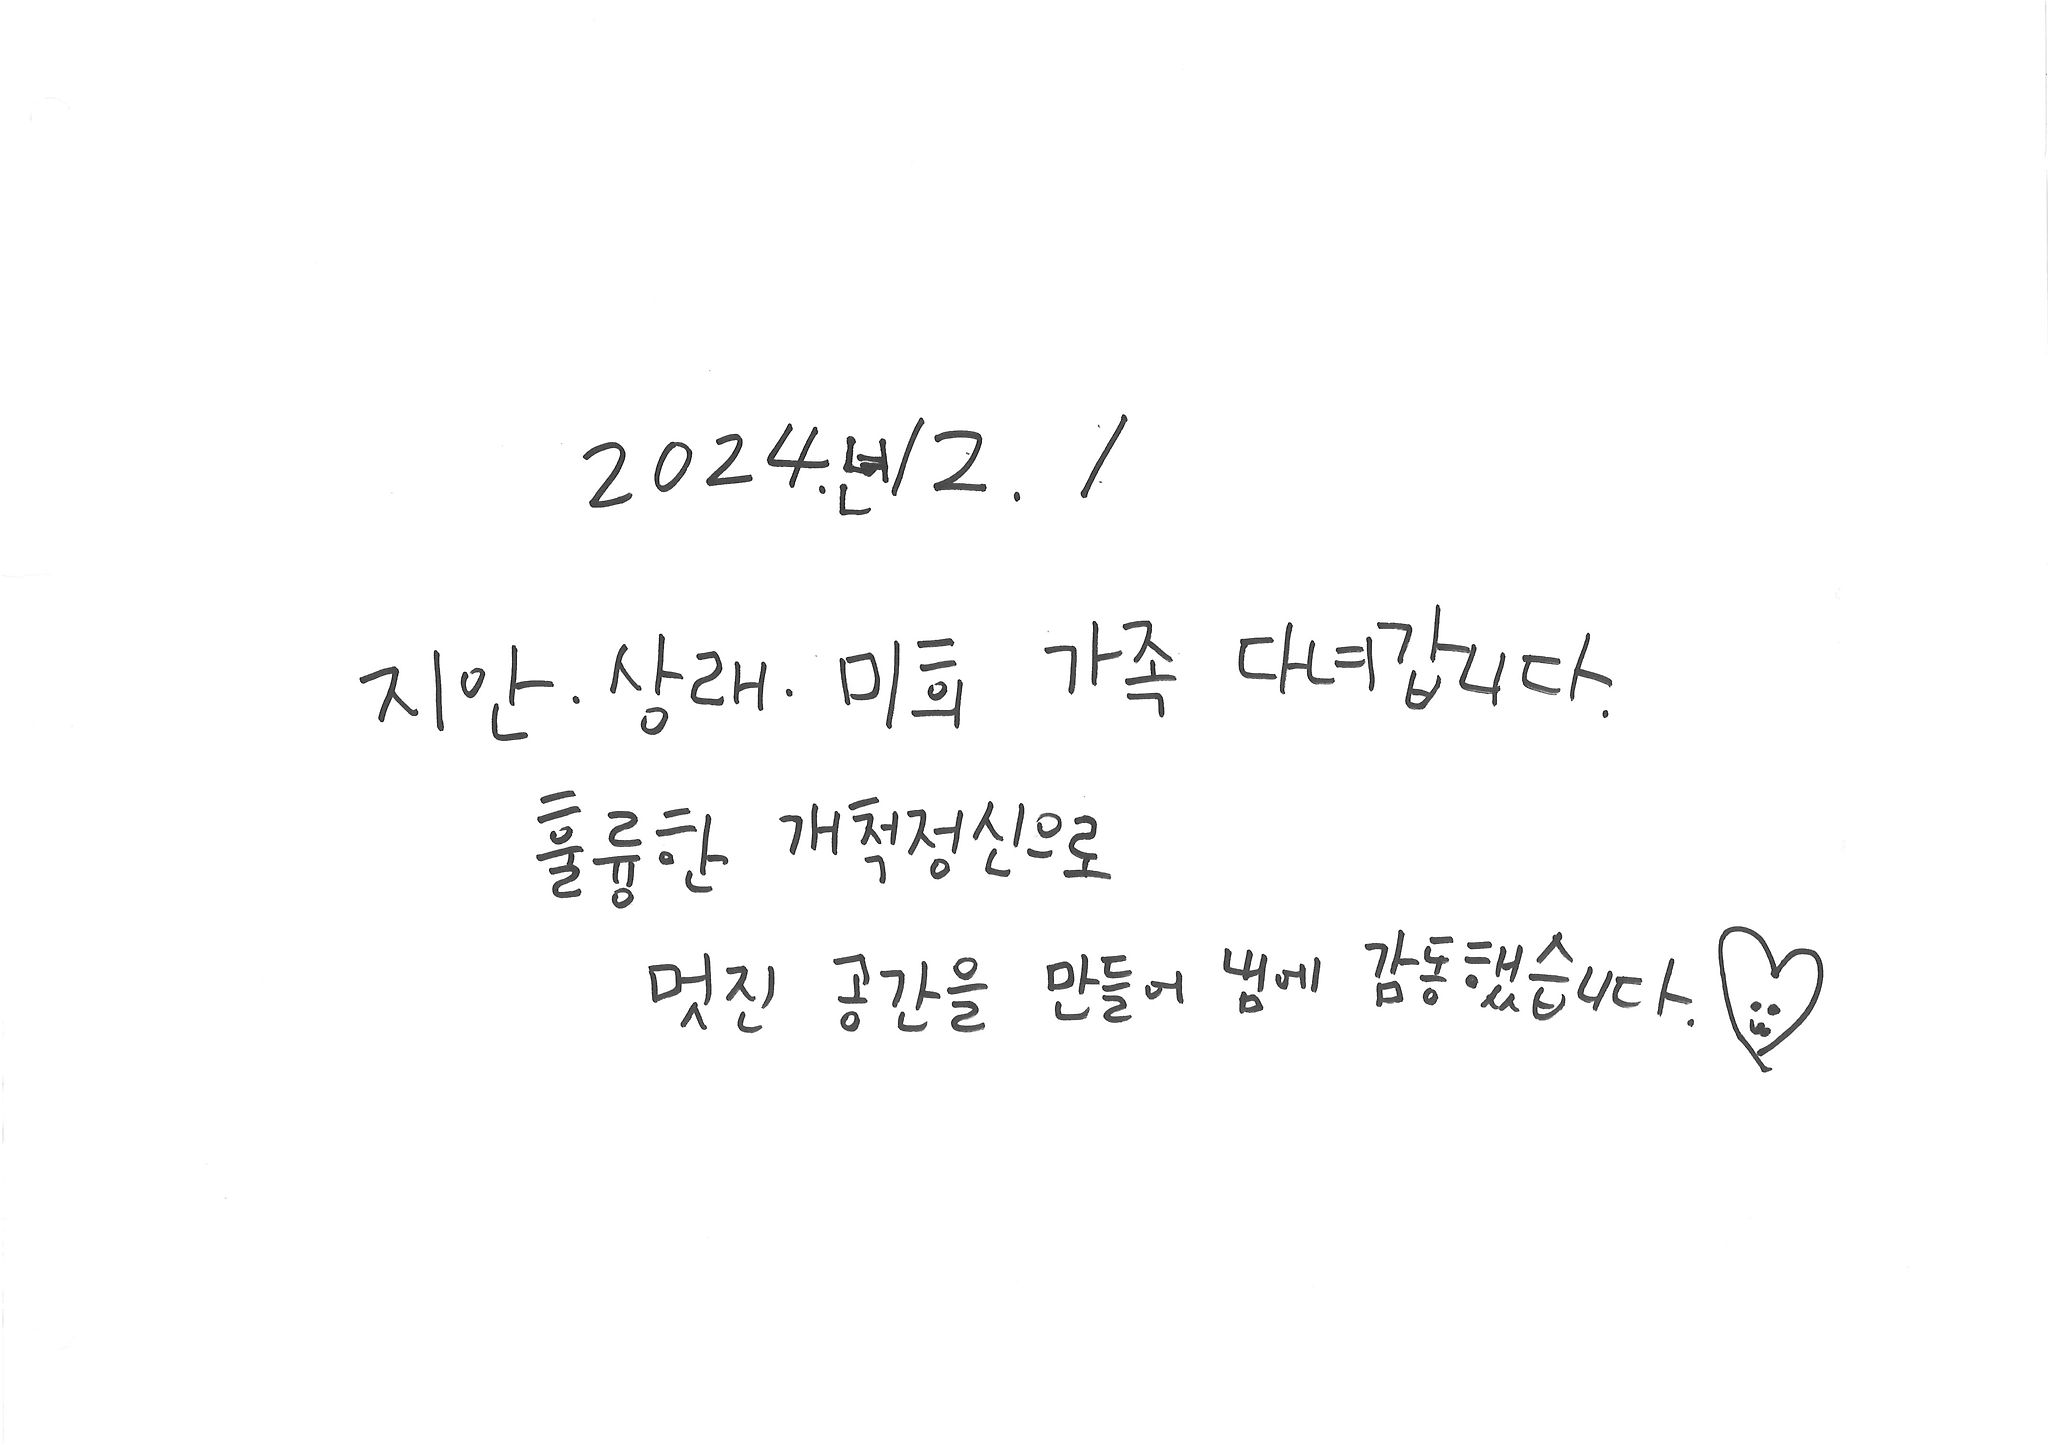 2024.년12. 1
지안.상래. 미희 가족 다녀갑니다.
훌륭한 개척정신으로
멋진 공간을 만들어 냄에 감동했습니다.